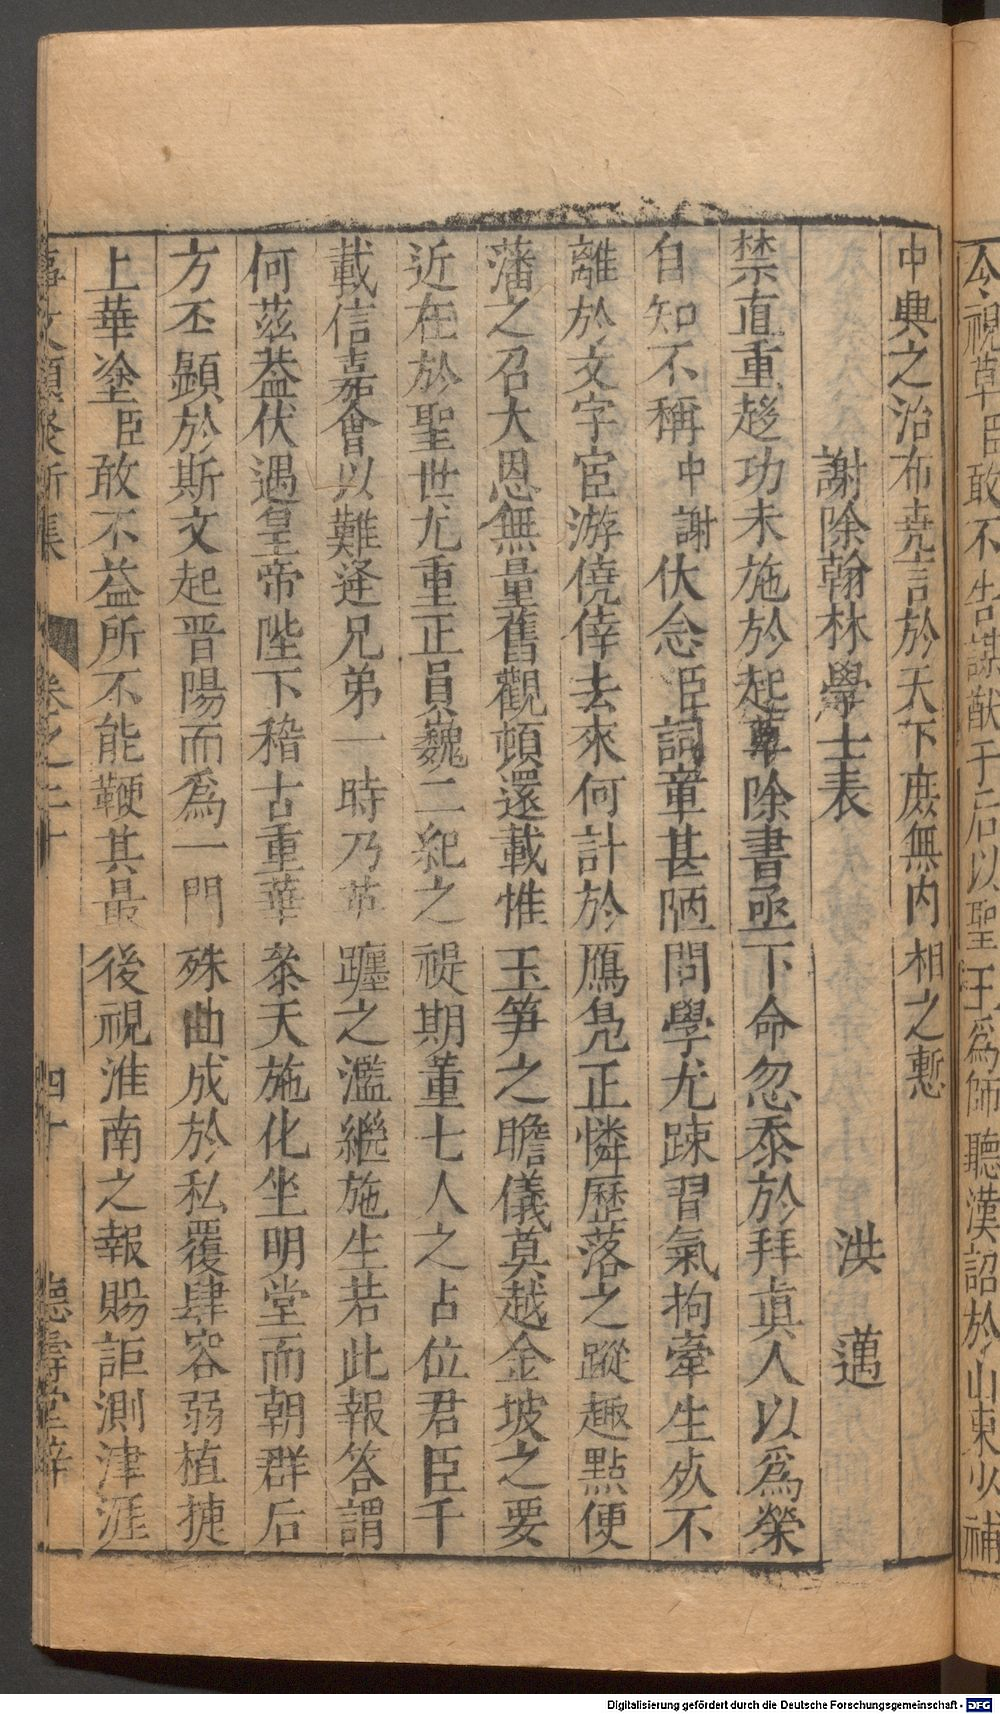 今視草臣敢不告謀猷于后以聖王爲師聽漢詔於山東少補
中興之治布堯言於天下庶無内相之慙
謝除翰林學士表 洪邁
禁直重趍功未施於起草除書亟下命忽忝於拜真人以爲榮
自知不稱中謝伏念臣詞章甚陋問學尤踈習氣拘牽生灰不
離於文字宦游僥倖去來何計於鴈鳧正憐歷落之蹤趣點便
藩之召大恩無量舊觀頓還載惟玉笋之瞻儀莫越金坡之要
近在於聖世尤重正員巍二紀之禔期董七人之占位君臣千
載信嘉會以難逢兄弟一時乃英躔之濫繼施生若此報答謂
何茲葢伏遇皇帝陛下稽古重華泰天施化坐明堂而朝群后
方丕顯於斯文起晋陽而爲一門殊曲成於私覆肆容弱植㨗
上華塗臣敢不益所不能鞭其最後視淮南之報賜詎測津涯
事文類聚新集 卷之二十 四十 德壽堂梓
Digitalisierung gefördert durch die Deutsche Forschungsgemeinschaft - DFG